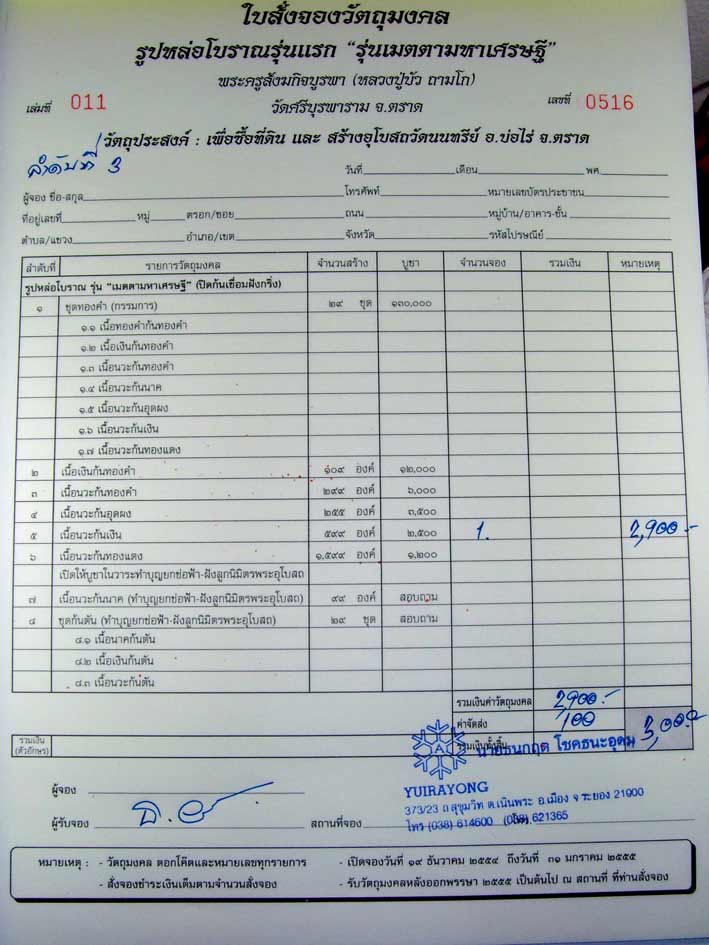 ใบสั่งจองวัตถุมงคล
รูปหล่อโบราณรุ่นแรก "รุ่นเมตตามหาเศรษฐี"
พระครูสังฆกิจบูรพา (หลวงปู่บัว ถามโก)
เล่มที่ 011 วัดศรีบุรพาราม จ.ตราด เลขที่ 0516
วัตถุประสงค์ : เพื่อซื้อที่ดิน และ สร้างอุโบสถวัดนนทรีย์ อ.บ่อไร่ จ.ตราด
ลำดับที่ 3
วันที่ เดือน พศ.
ผู้จอง ชื่อ-สกุล โทรศัพท์ หมายเลขบัตรประชาชน
ที่อยู่เลขที่ หมู่ ตรอก/ซอย ถนน หมู่บ้าน/อาคาร-ชั้น
ตำบล/แขวง อำเภอ/เขต จังหวัด รหัสไปรษณีย์
ลำดับที่ รายการวัตถุมงคล จำนวนสร้าง บูชา จำนวนจอง รวมเงิน หมายเหตุ
รูปหล่อโบราณ รุ่น "เมตตามหาเศรษฐี" (ปิดก้นเชื่อมฝังกริ่ง)
๑ ชุดทองคำ (กรรมการ) ๒๙ ชุด ๑๓๐,๐๐๐
๑.๑ เนื้อทองคำก้นทองคำ
๑.๒ เนื้อเงินก้นทองคำ
๑.๓ เนื้อนวะก้นทองคำ
๑.๔ เนื้อนวะก้นนาค
๑.๕ เนื้อนวะก้นอุดผง
๑.๖ เนื้อนวะก้นเงิน
๑.๗ เนื้อนวะก้นทองแดง
๒ เนื้อเงินก้นทองคำ ๑๐๙ องค์ ๑๒,๐๐๐
๓ เนื้อนวะก้นทองคำ ๒๙๙ องค์ ๖,๐๐๐
๔ เนื้อนวะก้นอุดผง ๒๕๕ องค์ ๓,๕๐๐
๕ เนื้อนวะก้นเงิน ๕๙๙ องค์ ๒,๕๐๐ 1. 2,900.-
๖ เนื้อนวะก้นทองแดง ๑,๕๙๙ องค์ ๑,๒๐๐
เปิดให้บูชาในวาระทำบุญยกช่อฟ้า-ฝังลูกนิมิตรพระอุโบสถ
๗ เนื้อนวะก้นนาค (ทำบุญยกช่อฟ้า-ฝังลูกนิมิตรพระอุโบสถ) ๙๙ องค์ สอบถาม
๘ ชุดก้นตัน (ทำบุญยกช่อฟ้า-ฝังลูกนิมิตรพระอุโบสถ) ๒๙ ชุด สอบถาม
๘.๑ เนื้อนาคก้นตัน
๘.๒ เนื้อเงินก้นตัน
๘.๓ เนื้อนวะก้นตัน
รวมเงินค่าวัตถุมงคล 2,900.-
ค่าจัดส่ง 100
รวมเงิน (ตัวอักษร) รวมเงินทั้งสิ้น 3,000
A นายธนกฤต โชคธนะอุดม
ผู้จอง YUIRAYONG
373/23 ถ.สุขุมวิท ต.เนินพระ อ.เมือง จ.ระยอง 21900
ผู้รับจอง สถานที่จอง โทร (038) 614600 (038) 621365
หมายเหตุ : - วัตถุมงคล ตอกโค๊ดและหมายเลขทุกรายการ - เปิดจองวันที่ ๑๙ ธันวาคม ๒๕๕๔ ถึงวันที่ ๓๑ มกราคม ๒๕๕๕
- สั่งจองชำระเงินเต็มตามจำนวนสั่งจอง - รับวัตถุมงคลหลังออกพรรษา ๒๕๕๕ เป็นต้นไป ณ สถานที่ ที่ท่านสั่งจอง